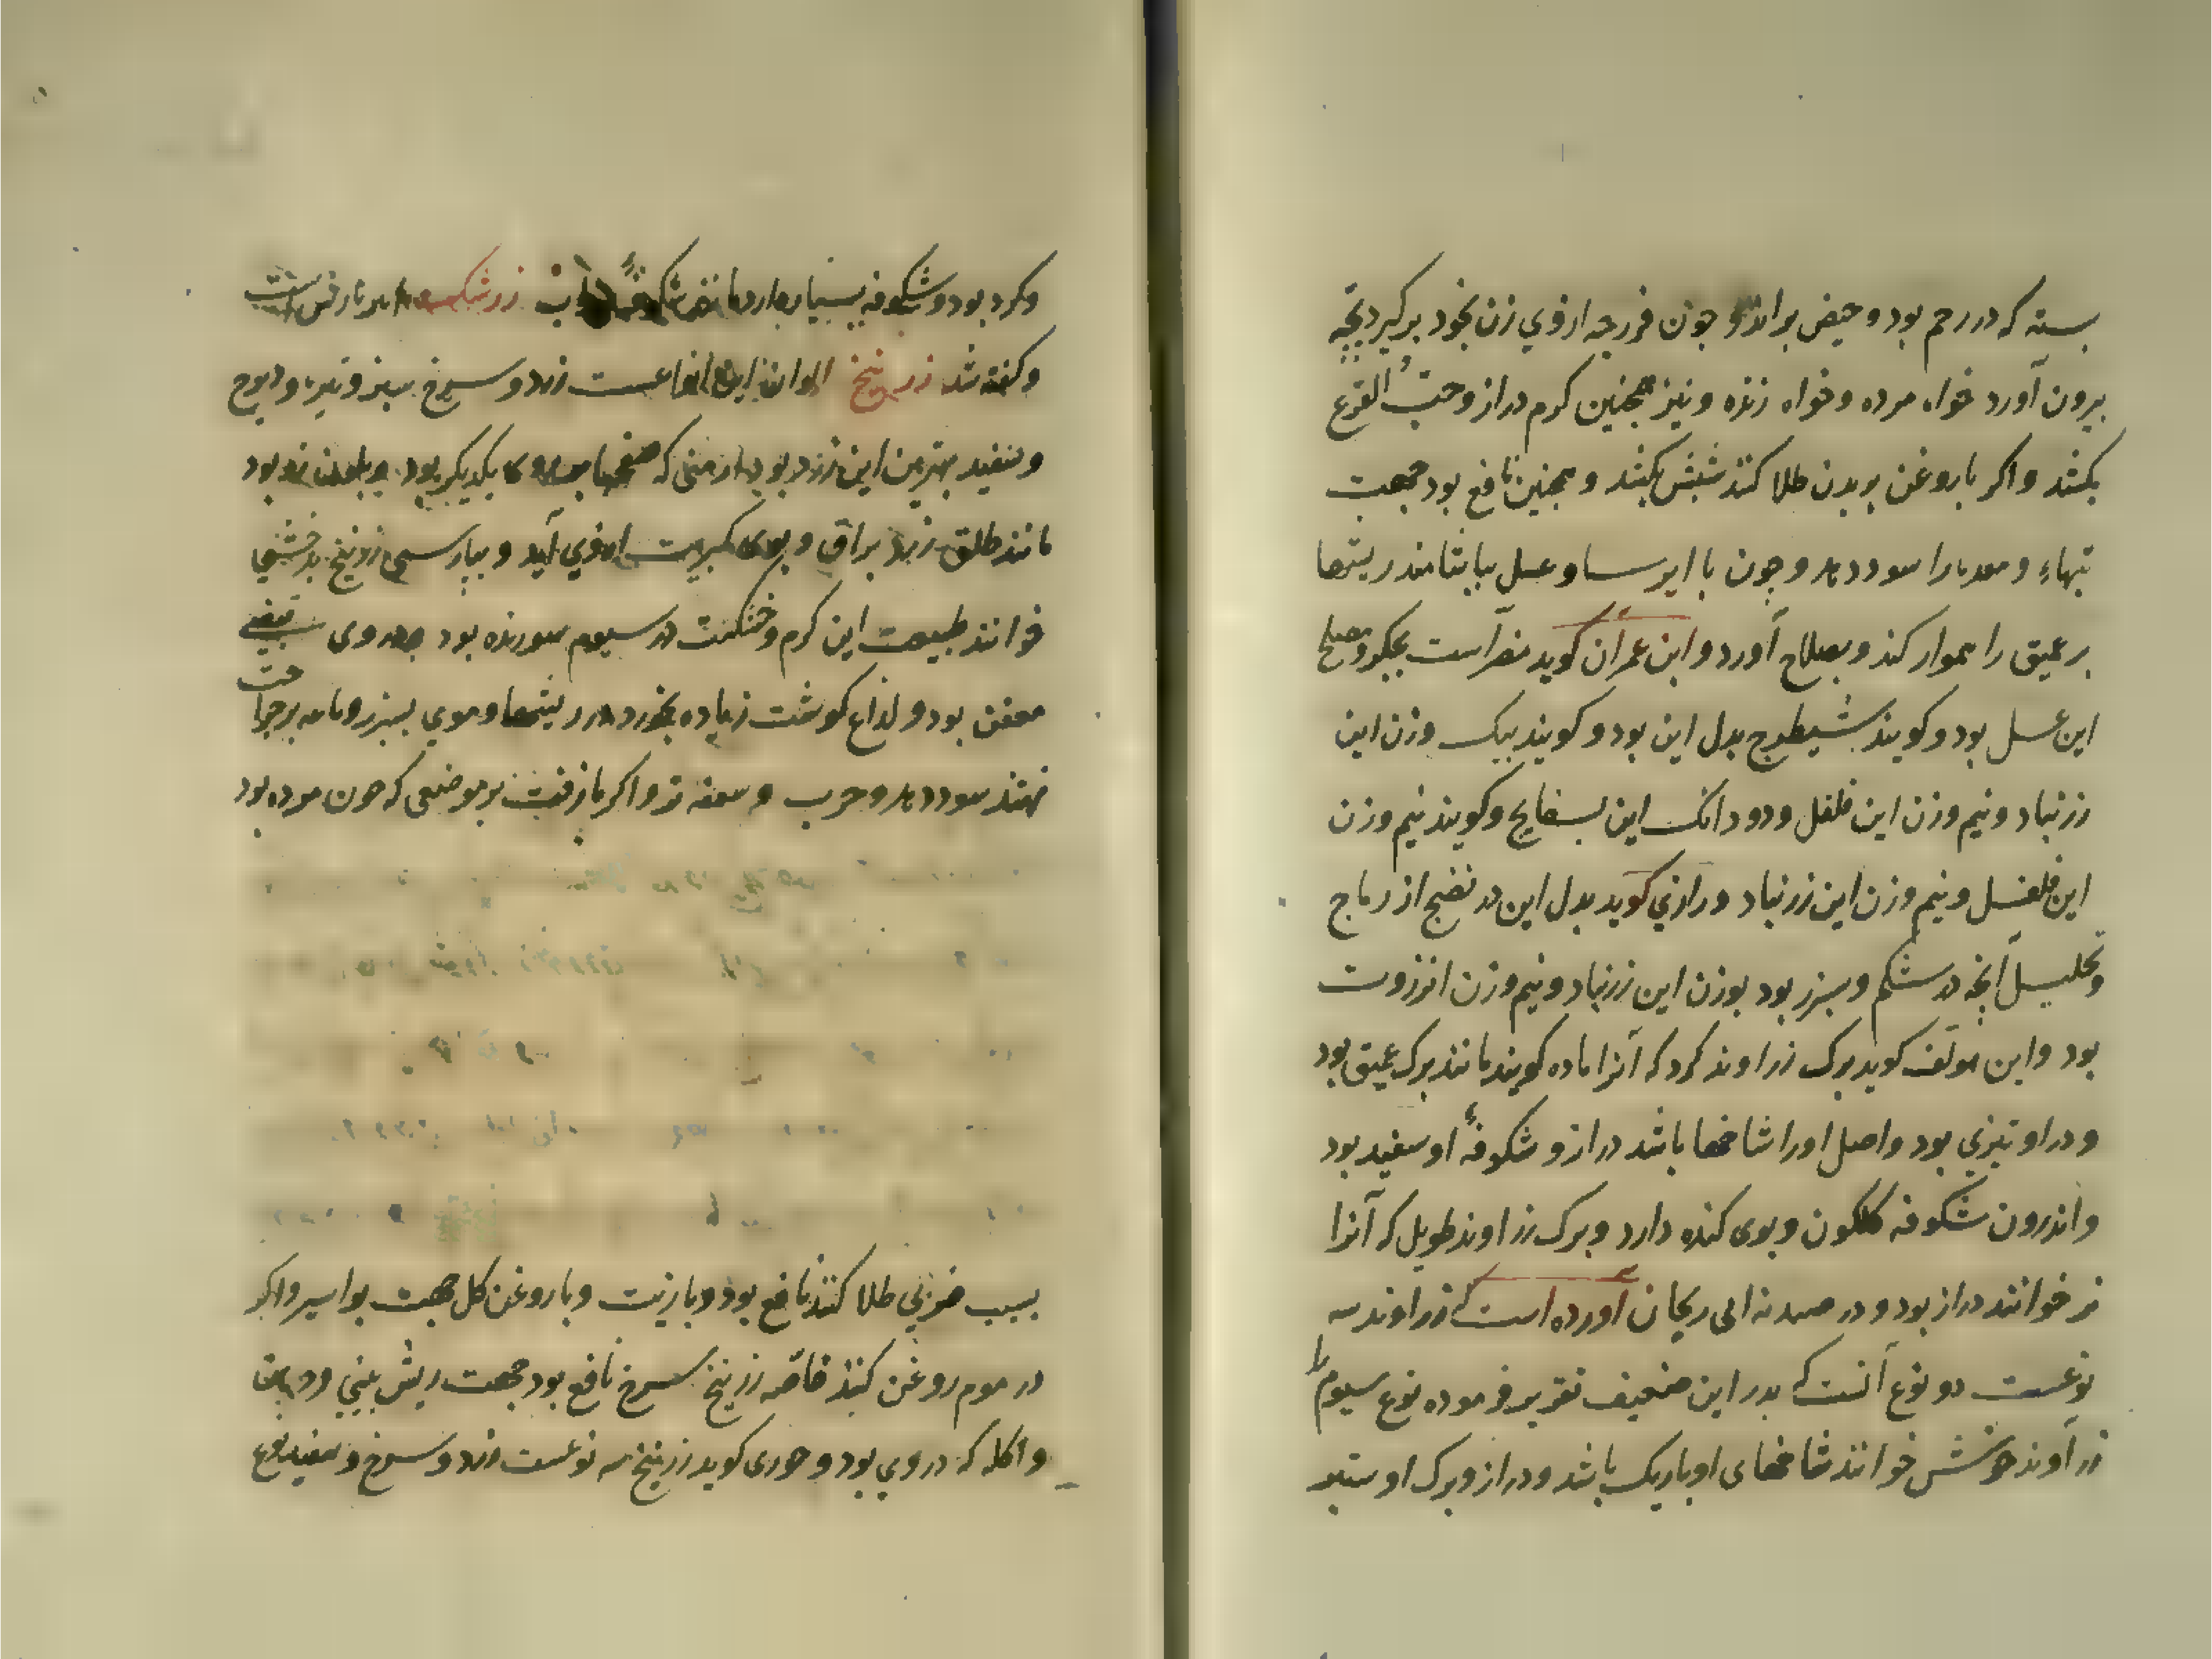 بسته که در رحم بود و حیض براند و چون فرزجه ازوي زن بخود برگیرد بچّه
بیرون آورد خواه مرده و خواه زنده و نیز همچنین کرم دراز و حبّ القرع
بکشد و اکر با روغن بر بدن طلا کنند شبش بکشد و همچنین نافع بود جهت
تبهاء و معده را سود دهد و چون با ایرسا و عسل بیاشامند ریشها
بر عمیق را هموار کند و بصلاح آورد و ابن عمران کوید مضرّ است بجکر و مصلح
این عسل بود و کویند شیطرج بدل این بود و کویند بیک وزن این
زرنباد و نیم وزن این فلفل و دو دانک این بسفایج و کویند نیم وزن
این فلفل و نیم وزن این زرنباد و رازي کوید بدل این در نضج از ریاح
و تحلیل آنچه در شکم و سپرز بود بوزن این زرنباد و نیم وزن انزروت
بود و ابن مولّف کوید برک زراوند کرد که آنرا ماده کویند مانند برک عمیق بود
و در او تیزي بود و اصل او را شاخها باشد دراز و شکوفهٔ او سفید بود
و اندرون شکوفه کلکون و بوی کنده دارد و برک زراوند طویل که آنرا
نر خوانند دراز بود و در صیدنه ابی ریحان آورده است که زراوند سه
نوعست دو نوع آنست که بدر این ضعیف تقریر فرموده نوع سیوم را
زرآوند خوش خوانند شاخهای او باریک باشد و دراز و برک او ستبر
و کرد بود و شکوفه بسیار دارد مانند شکوفهٔ زرشک است
و کفته شد زرنیخ الوان این انواعست زرد و سرخ سبز و تیره و
و سفید بهترین این زرد بود ارمنی که صفحها یکدیکر بود و بلون زر بود
مانند طلق زرد براق و بوی کبریت ازوي آید و بپارسی زرنیخ بدخشی
خوانند طبیعت این کرم و خشکست در سیوم سوزنده بود و در وی قبضی
معفن بود و لذاع کوشت زیاده بخورد در ریشها و موي بسترد و ما بر جراحت
نهند سود دهد و جرب و سعفه تر و اکر با زفت بر موضعی که خون مرده بود
بسبب ضربي طلا کنند نافع بود و با زیت و با روغن کل جهت بواسیر و اکر
در موم روغن کنند خاصّه زرنیخ سرخ نافع بود جهت ریش بیني و دهان
و اکله که در وي بود و خوری کوید زرنیخ سه نوعست زرد و سرخ و سفید نوع